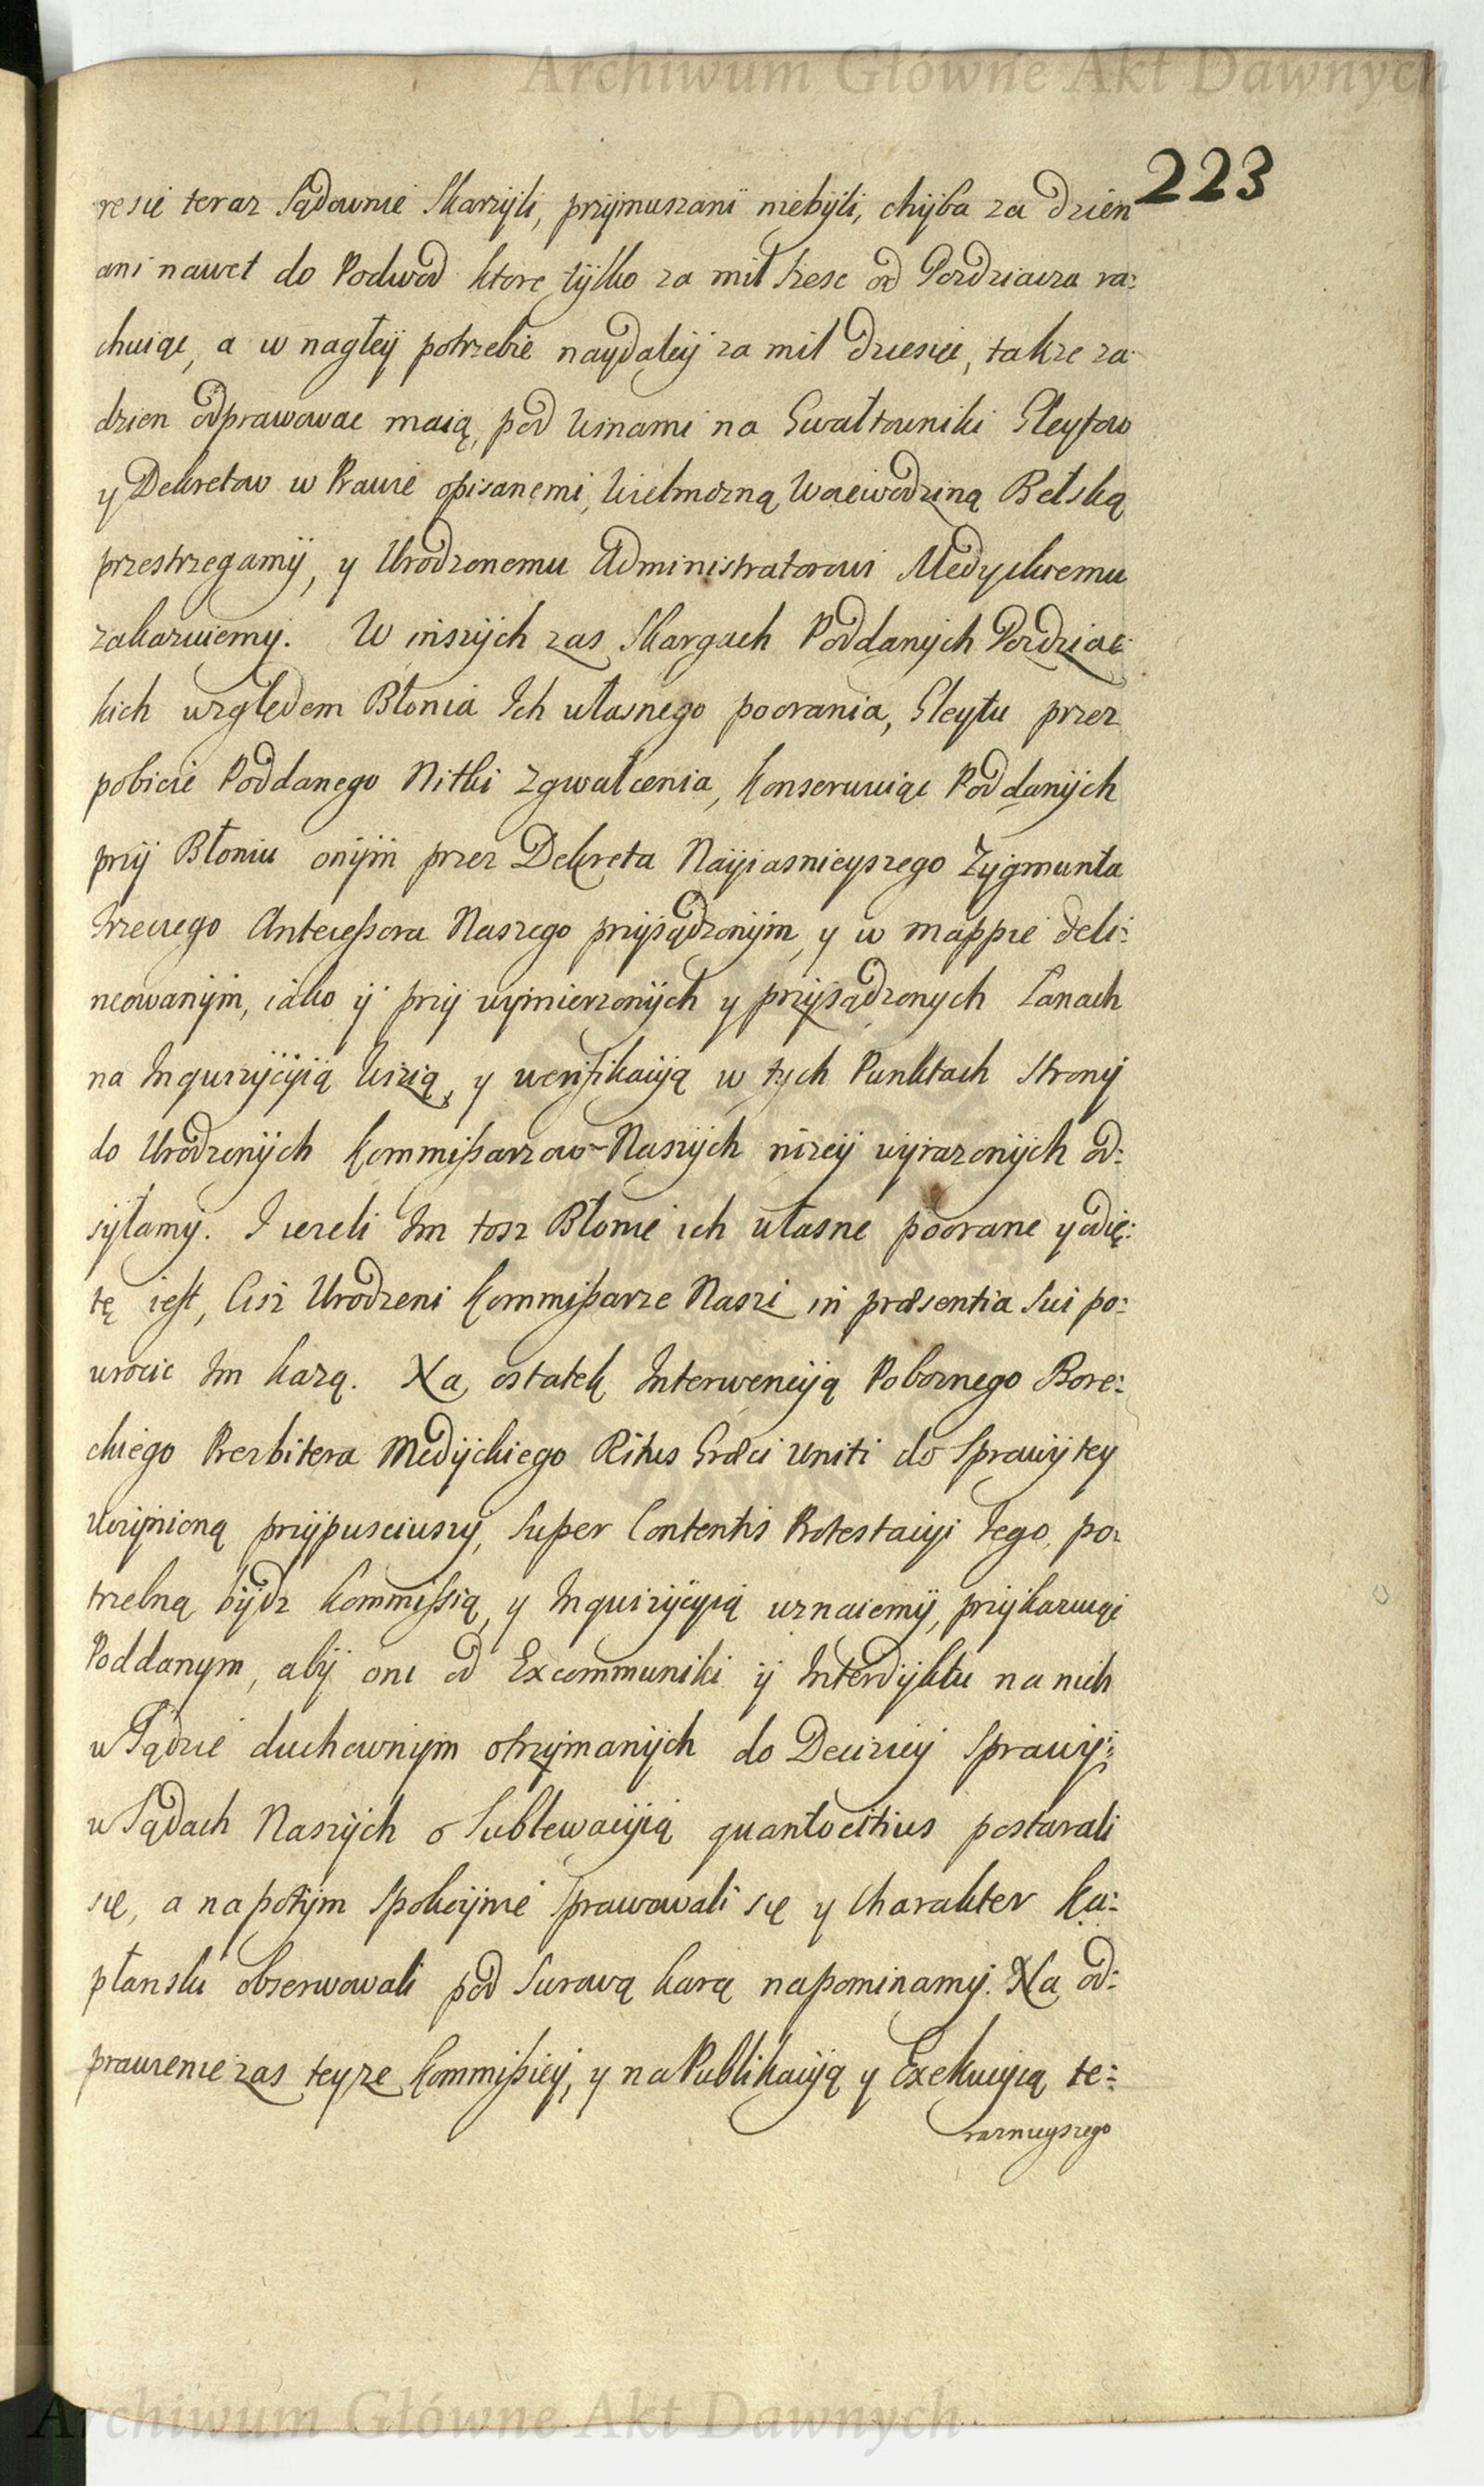 Archiwum Główne Akt Dawnych
223
re sie teraz Sądownie Skarzyli, przymuszani niebyli, chyba za dzien
ani nawet do Podwod ktore tylko za mil szesc od Pozdziacza ra:
chuiąc, a w nagłey potrzebie naydaley za mil dziesiec, takze za
dzien odprawowac maią, pod winami na Gwałtowniki Gleytow
y Dekretow w Prawie opisanemi, Wielmozną Woiewodziną Bełską
przestrzegamy, y Urodzonemu Administratorowi Medyckiemu
zakazuiemy. W inszych zas Skargach Poddanych Pozdziac:
kich względem Błonia Ich własnego poorania, Gleytu przez
pobicie Poddanego Nitki zgwałcenia, konserwuiąc Poddanych
przy Błoniu onym przez Dekreta Nayiasnieyszego Zygmunta
Trzeciego Antecessora Naszego przysądzonym, y w mappie deli:
neowanym, iako y przy wymierzonych y przysądzonych Łanach
na Inquizycyią Wizią, y weryfikacyą w tych Punktach Strony
do Urodzonych Kommissarzow Naszych nizey wyrazonych od:
syłamy. I iezeli Im tosz Błonie ich własne poorane y odię:
tę iest, Cisz Urodzeni Kommissarze Naszi in præsentia Sui po:
wrocic Im kazą. Na ostatek Interwencyią Pobornego Bore:
ckiego Prezbitera Medyckiego Ritus Græci Uniti do Sprawy tey
uczynioną przypusciwszy, Super Contentis Protestacyi Iego, po:
trzebną bydz Kommissią, y Inquizycyią uznaiemy, przykazuiąc
Poddanym, aby oni od Excommuniki y Interdyktu na nich
w Sądzie duchownym otrzymanych do Decizicy Sprawy:
w Sądach Naszych o Sublewacyią quantocitius postarali
się, a napotym Spokoynie Sprawowali się y Charakter Ka:
płanski obserwowali pod Surową karą napominamy. Na od:
prawienie zas teyze Kommissiey, y na Publikacyią y Exekucyią te:
raznieyszego
Archiwum Główne Akt Dawnych